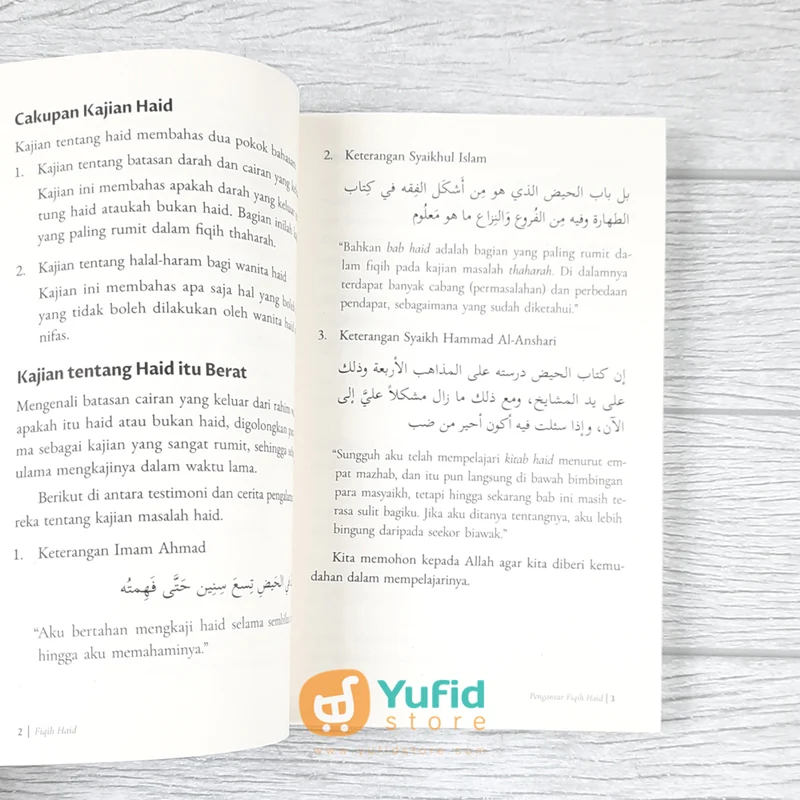 Cakupan Kajian Haid
Kajian tentang haid membahas dua pokok bahasan
1. Kajian tentang batasan darah dan cairan yang
Kajian ini membahas apakah darah yang keluar
tung haid ataukah bukan haid. Bagian inilah
yang paling rumit dalam fiqih thaharah.
2. Kajian tentang halal-haram bagi wanita haid
Kajian ini membahas apa saja hal yang
yang tidak boleh dilakukan oleh wanita haid
nifas.
Kajian tentang Haid itu Berat
Mengenali batasan cairan yang keluar dari rahim
apakah itu haid atau bukan haid, digolongkan
ma sebagai kajian yang sangat rumit, sehingga
ulama mengkajinya dalam waktu lama.
Berikut di antara testimoni dan cerita
reka tentang kajian masalah haid.
1. Keterangan Imam Ahmad
الحَيضِ تِسعَ سِنِين حَتَّى فَهِمتُه
“Aku bertahan mengkaji haid selama
hingga aku memahaminya.”
2 | Fiqih Haid
2. Keterangan Syaikhul Islam
بل باب الحيض الذي هو مِن أَشكَل الفِقه في كِتاب
الطهارة وفيه مِن الفُروع وَالنِزاع ما هو مَعلُوم
“Bahkan bab haid adalah bagian yang paling rumit da-
lam fiqih pada kajian masalah thaharah. Di dalamnya
terdapat banyak cabang (permasalahan) dan perbedaan
pendapat, sebagaimana yang sudah diketahui.”
3. Keterangan Syaikh Hammad Al-Anshari
إن كتاب الحيض درسته على المذاهب الأربعة وذلك
على يد المشايخ، ومع ذلك ما زال مشكلاً عليَّ إلى
الآن، وإذا سئلت فيه أكون أحير من ضب
“Sungguh aku telah mempelajari kitab haid menurut em-
pat mazhab, dan itu pun langsung di bawah bimbingan
para masyaikh, tetapi hingga sekarang bab ini masih te-
rasa sulit bagiku. Jika aku ditanya tentangnya, aku lebih
bingung daripada seekor biawak.”
Kita memohon kepada Allah agar kita diberi kemu-
dahan dalam mempelajarinya.
Pengantar Fiqih Haid | 3
Yufid
store
www.yufidstore.com